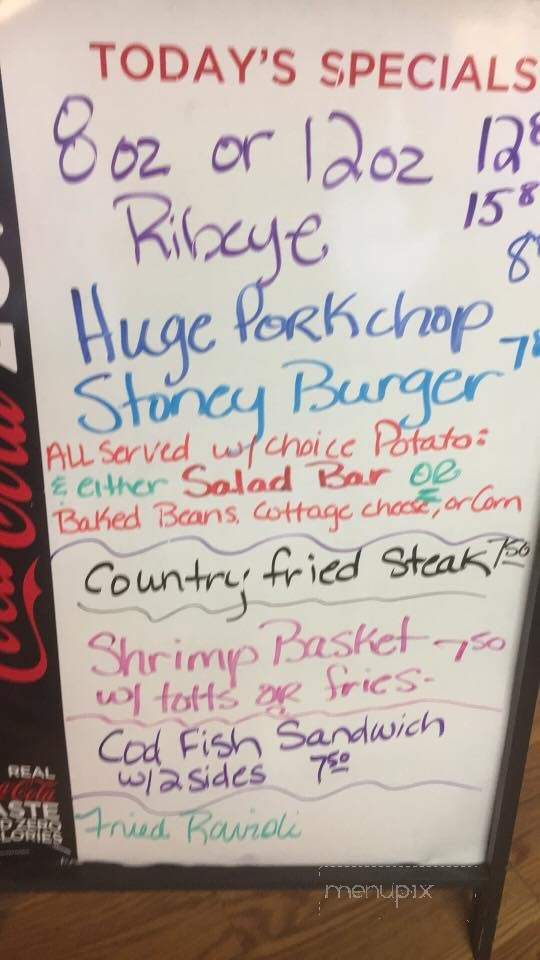 TODAY'S SPECIALS
8oz or 12oz 128
Ribeye 158
8
Huge Porkchop
Stoney Burger 78
ALL Served w/ choice Potato:
& either Salad Bar OR
Baked Beans, Cottage cheese, or Corn
Country fried Steak 7.50
Shrimp Basket - 7.50
w/ totts OR fries-
Cod Fish Sandwich
w/2 sides 7.50
Fried Ravioli
Coca-Cola
REAL
Coca-Cola
menupix